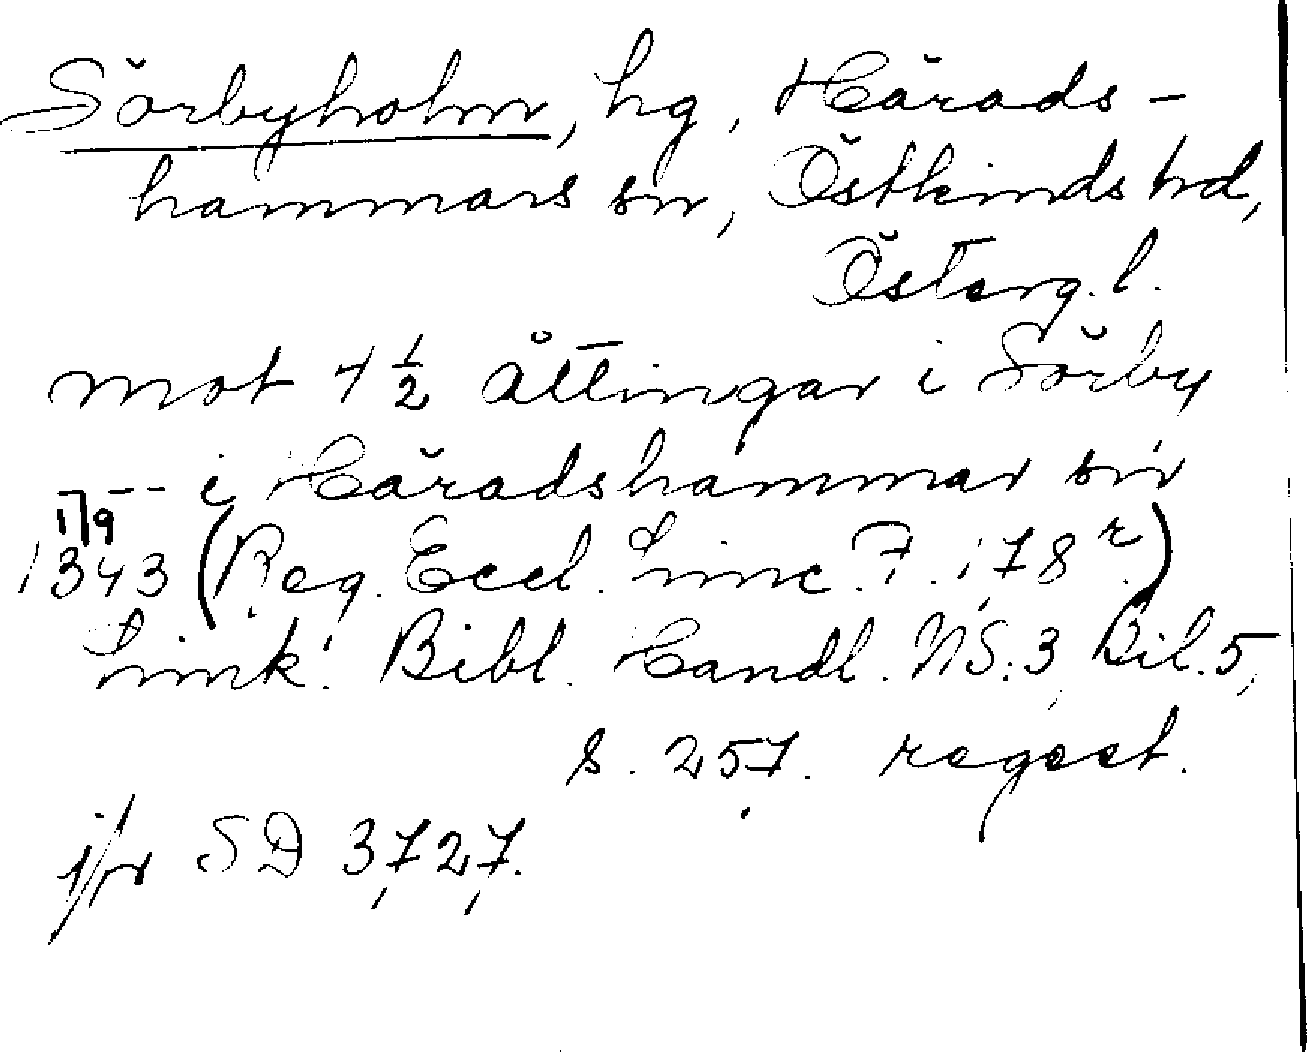 Sörbyholm, hg, Härads-
hammars sn, Östkinds hd,
Österg. l.
mot 7 ½ ättingar i Sörby
--- i Häradshammar sn
17/9
1343 (Reg. Eccl. Linc. F. 178 r.)
Link. Bibl. Handl. NS. 3, Bil. 5,
s. 257. regest.
jfr SD 3727.